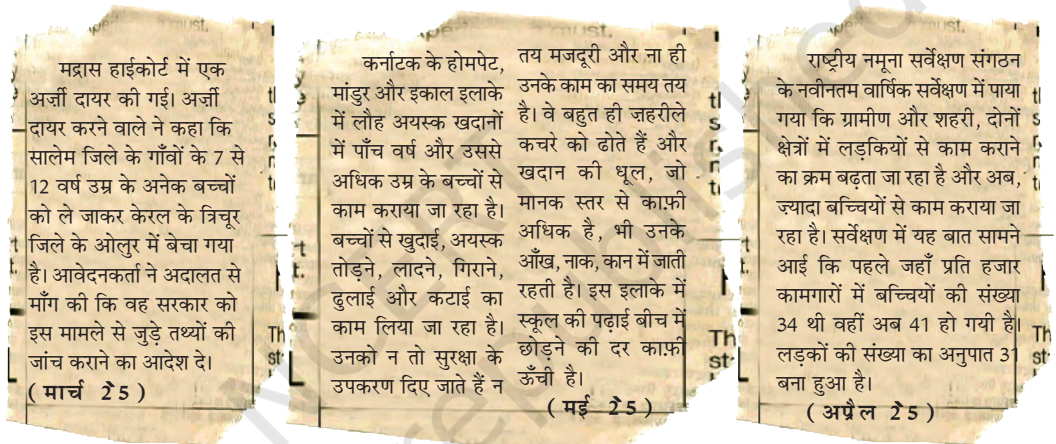 मद्रास हाईकोर्ट में एक
अर्ज़ी दायर की गई। अर्ज़ी
दायर करने वाले ने कहा कि
सालेम जिले के गाँवों के 7 से
12 वर्ष उम्र के अनेक बच्चों
को ले जाकर केरल के त्रिचूर
जिले के ओलुर में बेचा गया
है। आवेदनकर्ता ने अदालत से
माँग की कि वह सरकार को
इस मामले से जुड़े तथ्यों की
जांच कराने का आदेश दे।
(मार्च 2े5)
कर्नाटक के होमपेट,
मांडुर और इकाल इलाके
में लौह अयस्क खदानों
में पाँच वर्ष और उससे
अधिक उम्र के बच्चों से
काम कराया जा रहा है।
बच्चों से खुदाई, अयस्क
तोड़ने, लादने, गिराने,
ढुलाई और कटाई का
काम लिया जा रहा है।
उनको न तो सुरक्षा के
उपकरण दिए जाते हैं न
तय मजदूरी और ना ही
उनके काम का समय तय
है। वे बहुत ही ज़हरीले
कचरे को ढोते हैं और
खदान की धूल, जो
मानक स्तर से काफ़ी
अधिक है, भी उनके
आँख, नाक, कान में जाती
रहती है। इस इलाके में
स्कूल की पढ़ाई बीच में
छोड़ने की दर काफ़ी
ऊँची है।
(मई 2े5)
राष्ट्रीय नमूना सर्वेक्षण संगठन
के नवीनतम वार्षिक सर्वेक्षण में पाया
गया कि ग्रामीण और शहरी, दोनों
क्षेत्रों में लड़कियों से काम कराने
का क्रम बढ़ता जा रहा है और अब,
ज्यादा बच्चियों से काम कराया जा
रहा है। सर्वेक्षण में यह बात सामने
आई कि पहले जहाँ प्रति हजार
कामगारों में बच्चियों की संख्या
34 थी वहीं अब 41 हो गयी है।
लड़कों की संख्या का अनुपात 31
बना हुआ है।
(अप्रैल 2े5)